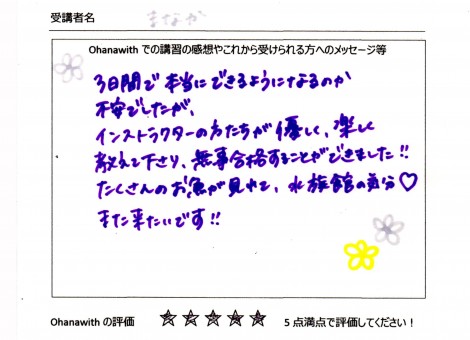 受講者名 まなか
Ohanawith での講習の感想やこれから受けられる方へのメッセージ等
3日間で本当にできるようになるのか
不安でしたが、
インストラクターの方たちが優しく、楽しく
教えて下さり、無事合格することができました!!
たくさんのお魚が見れて、水族館の気分♡
また来たいです!!
Ohanawith の評価 ★★★★★ 5点満点で評価してください!